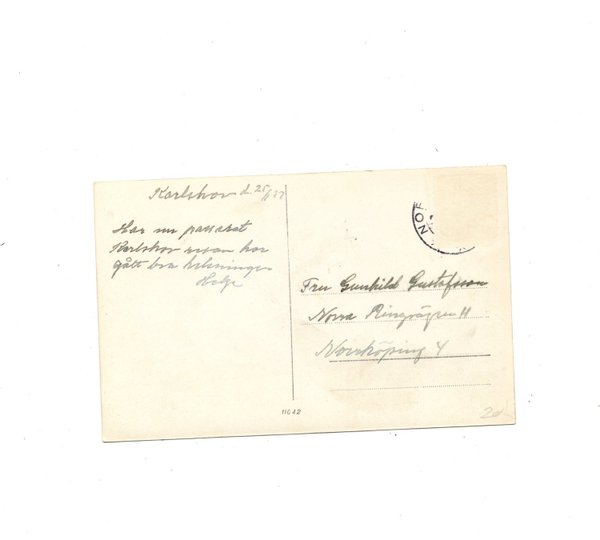 Karlskov d. 25/ 37
Har nu passarat
Karlskov resan har
gått bra hälsningen
Helge
Fru Gunhild Gustafsson
Norra Ringvägen 11
Norrköping 4
11642
NOR